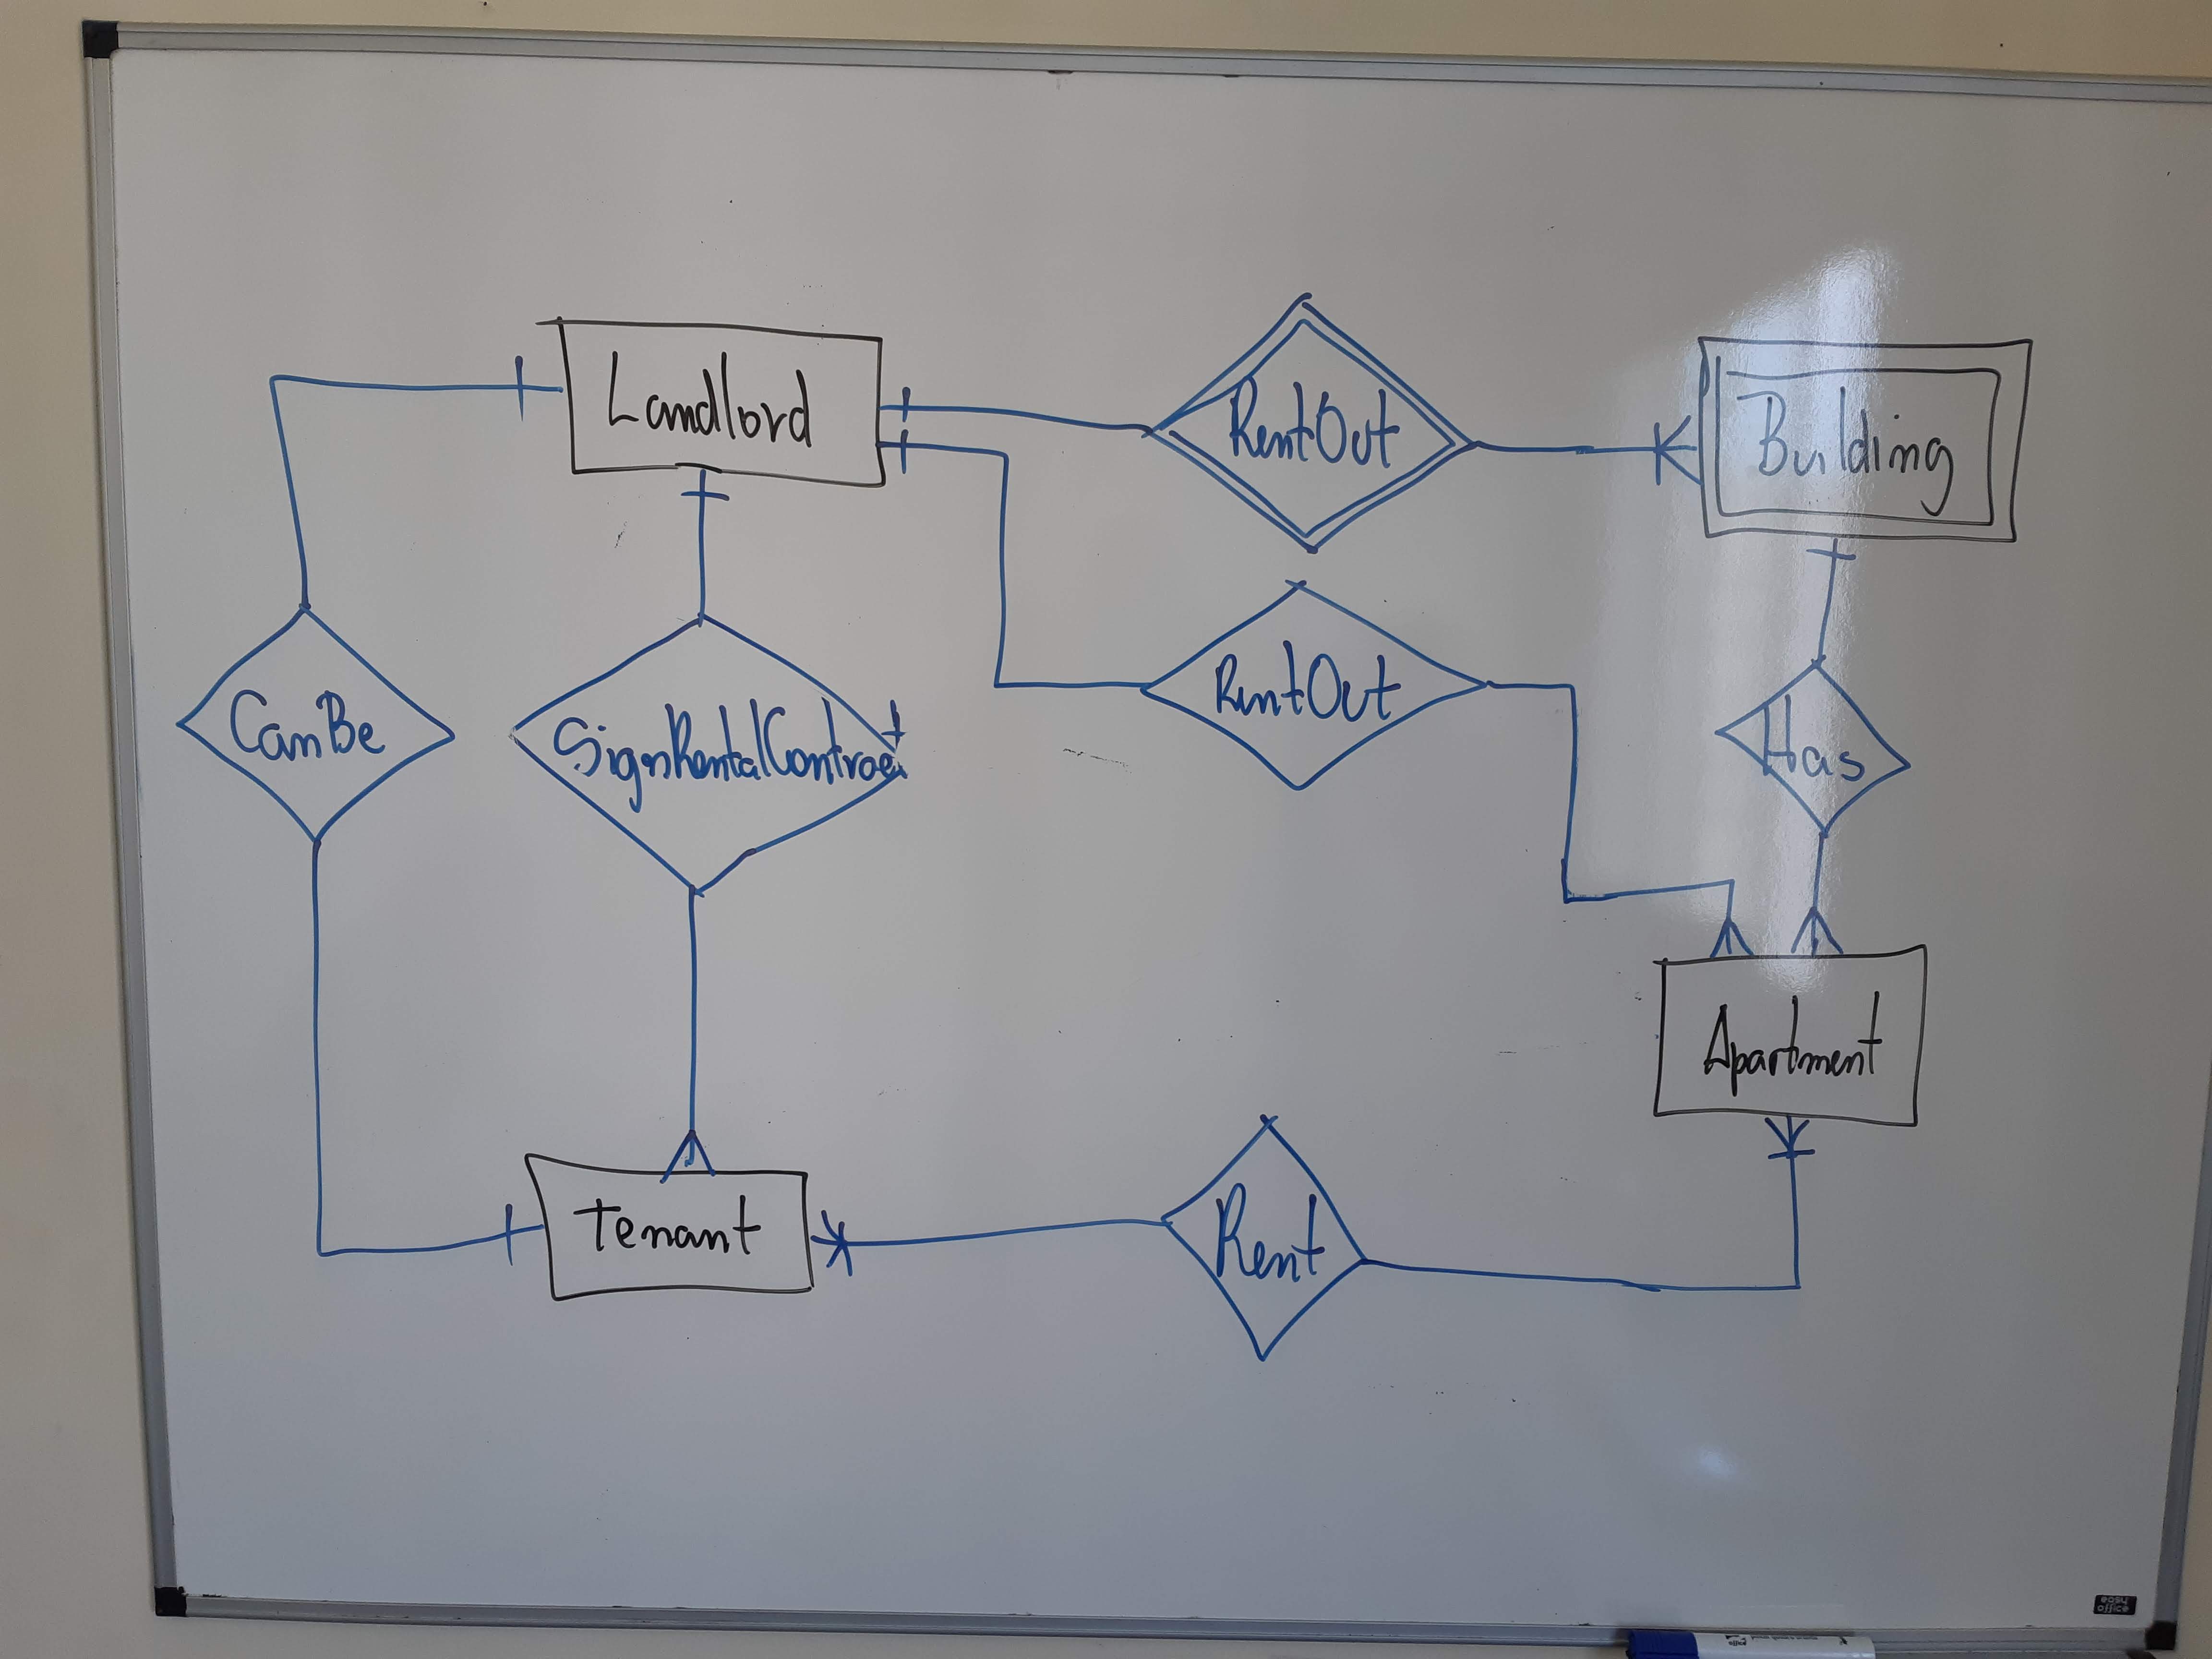 Landlord
RentOut
Building
RentOut
CanBe
SignRentalContract
Has
Apartment
Tenant
Rent
easy
office